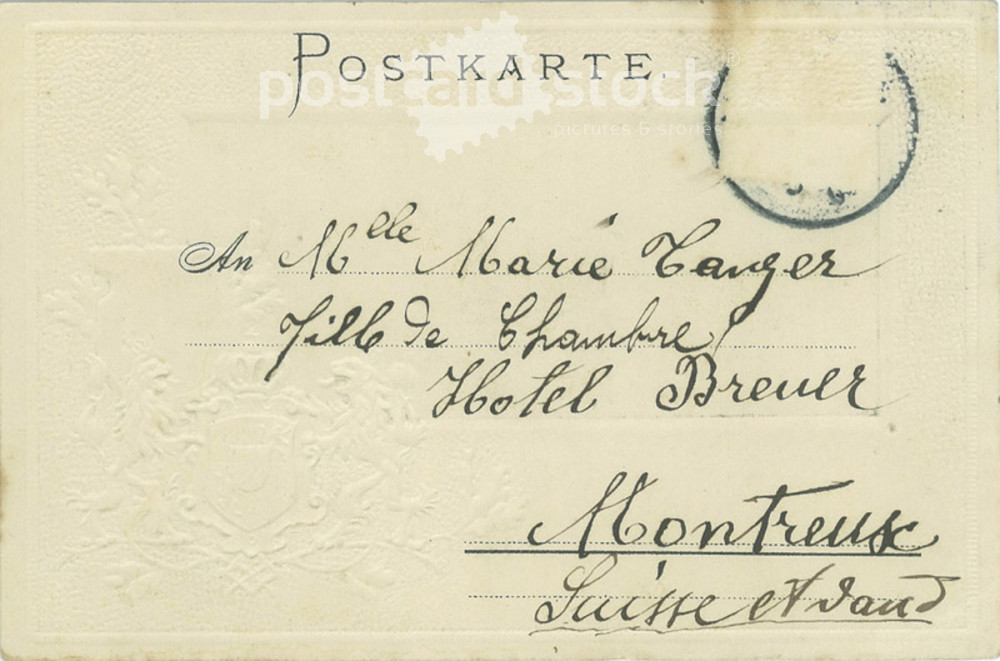 POSTKARTE.
postcard stock
pictures & stories
An Mlle Marie Tanger
Fille de Chambre
Hotel Breuer
Montreux
Suisse et Vaud